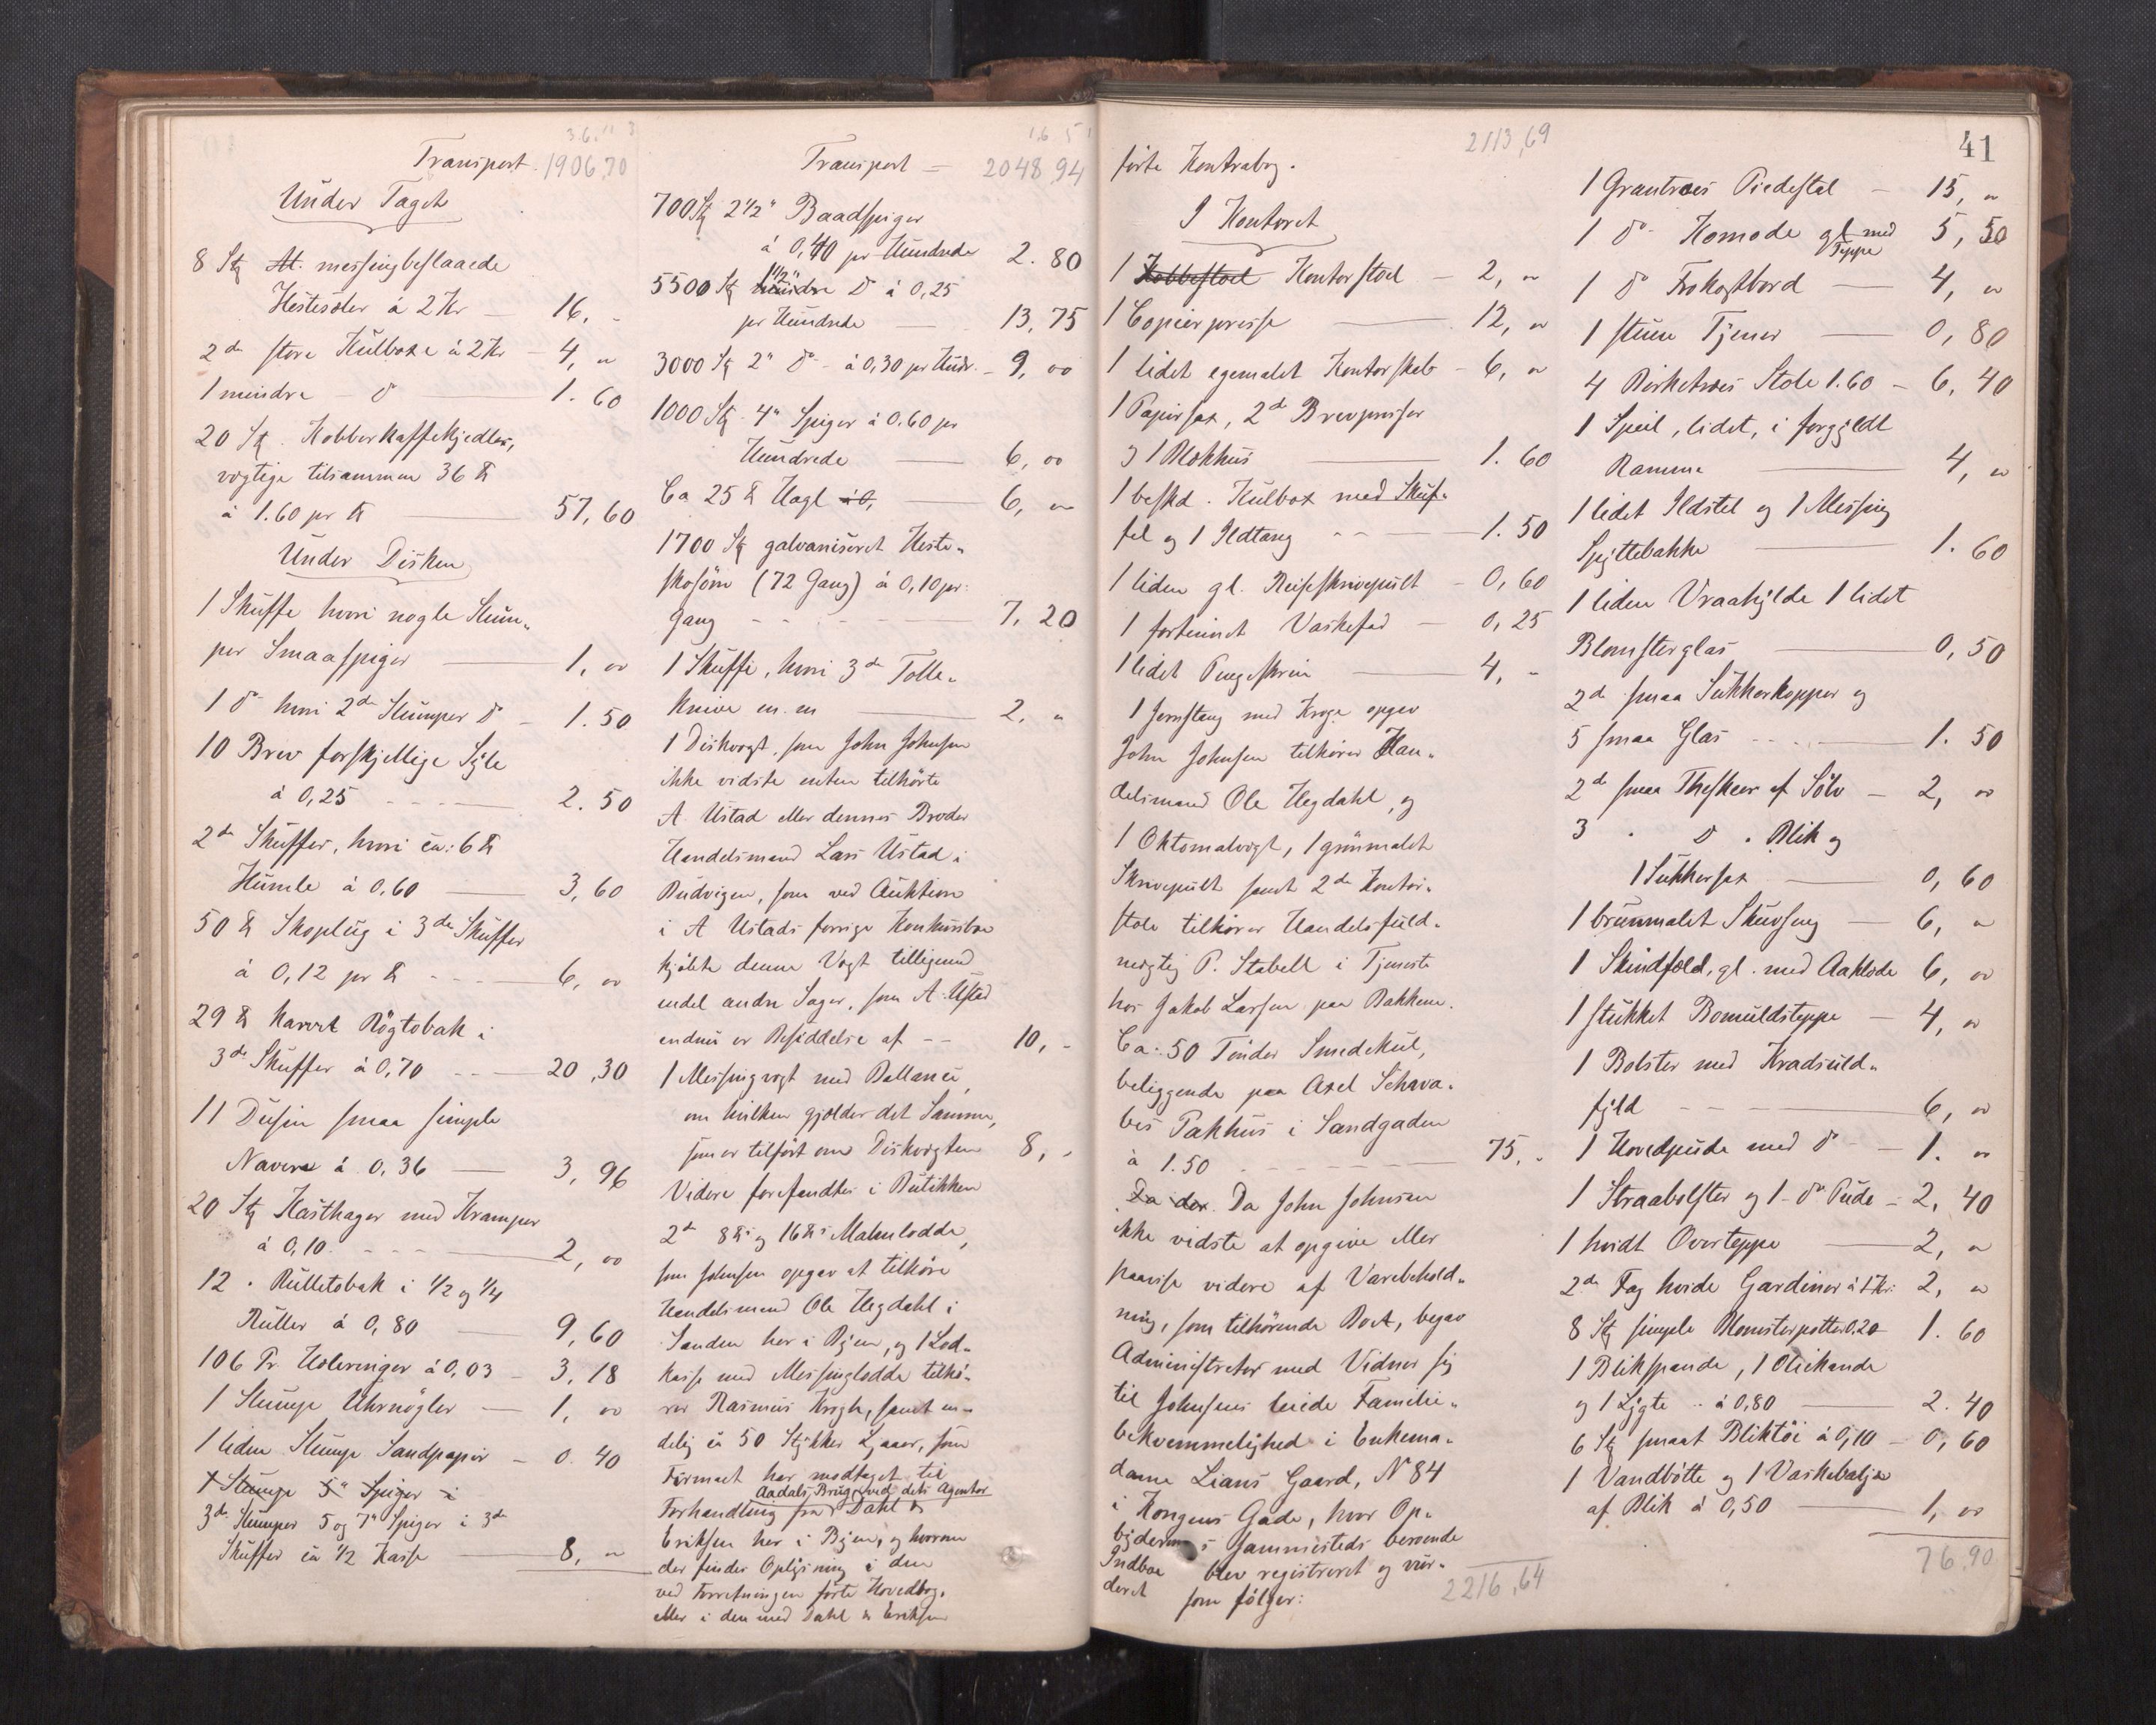 Transport 1906,70
Under Taget
8 Stk messingbeslaaede
Hestesöler á 2 Kr — 16, -
2de store Kulboxe á 2 Kr — 4, "
1 mindre — do 1.60
20 Stk. Kobberkaffekjedler,
vægtige tilsammen 36 ℔
á 1.60 pr ℔ — 57,60
Under Disken
1 Skuffe hvori nogle Slum-
per Smaaspiger — 1, 00
1 do hvori 2de Slumper do — 1.50
10 Brev forskjellige Syle
á 0,25 — 2.50
2de Skuffer, hvori ca: 6 ℔
Humle á 0,60 — 3,60
50 ℔ Skoplug i 3de Skuffer
á 0,12 pr ℔ — 6, 00
29 ℔ karvet Rögtobak i
3de Skuffer á 0,70 — 20,30
11 Dusin smaa simple
Navere á 0,36 — 3,96
20 Stk Hasthager med Kramper
á 0,10 — 2, 00
12 " Rulletobak i 1/2 og 1/4
Ruller á 0,80 — 9,60
106 Pr. Holeringer á 0,03 — 3,18
1 Slumpe Uhrnögler — 1, 00
1 liden Slumpe Sandpapir — 0.40
1 Slumpe 5" Spiger i
3de Slumper 5 og 7" Spiger i 3de
Skuffer ca 1/2 Kasse — 8, "
Transport = 2048,94
700 Stk 2 1/2" Baadspiger
á 0,40 pr Hundrede 2.80
5500 Stk mindre 1 1/2" do á 0,25
pr Hundrede — 13,75
3000 Stk 2" do - á 0,30 pr Hundr. — 9, 00
1000 Stk - 4" Spiger á 0.60 pr
Hundrede — 6, 00
Ca 25 ℔ Hagl á 0, — 6, "
1700 Stk galvaniseret Heste-
skosöm (72 Gang) á 0,10 pr:
Gang — 7,20
1 Skuffe, hvori 3de Tolle-
knive m.m — 2, "
1 Diskvægt, som John Johnsen
ikke vidste enten tilhörte
A. Ustad eller dennes Broder
Handelsmand Lars Ustad i
Budvigen, som ved Auktion
i A Ustads forrige Konkursbo
kjöbte denne Vægt tilligemed
endel andre Sager, som A. Ustad
endnu er Besiddelse af — 10, -
1 Messingvægt med Ballance,
om hvilken gjælder det Samme,
som er tilfört om Diskvægten 8, -
Videre forefandtes i Butikken
2de 8 ℔s og 16 ℔s Malmlodde,
som Johnsen opgav at tilhöre
Handelsmand Ole Hegdahl i
Sanden her i Byen, og 1 Lod-
kasse med Messinglodde tilhö-
rer Rasmus Krogh, samt en-
delig ca 50 Stykker Ljaaer, som
Firmaet har modtaget til
Aadals Brug ved dets Agenter
Forhandling fra Dahl &
Eriksen her i Byen, og hvorom
der findes Oplysning i den
ved Forretningen förte Hovedbog.
eller i den med Dahl & Eriksen
41
förte Kontrabog. 2113,69
I Kontoret
1 Kobbestol Kontorstol — 2, "
1 Copierpresse — 12, "
1 lidet egemalet Kontorskab — 6, "
1 Papirsax, 2de Brevpresser
og 1 Blækhus — 1.60
1 beskd. Kulbox med Skuf-
fel og 1 Ildtang — 1.50
1 liden gl. Reiseskrivepult — 0,60
1 fortinnet Vaskefad — 0,25
1 lidet Pengeskrin — 4, -
1 Jernstang med Kroge opgav
John Johnsen tilhörer Han-
delsmand Ole Hegdahl, og
1 Oktomalvægt, 1 grönmalet
Skrivepult samt 2de Kontor-
stole tilhörer Handelsfuld-
mægtig P. Stabell i Tjeneste
hos Jakob Larsen paa Bakken.
Ca: 50 Tönder Smedekul,
beliggende paa Axel Schwa-
bes Pakhus i Sandgaden
á 1.50 — 75, -
Da der. Da John Johnsen
ikke vidste at opgive eller
paavise videre af Varebehold-
ning, som tilhörende Boet, begav
Administrator med Vidner sig
til Johnsens leiede Familie-
bekvemmelighed i Enkema-
dame Lians Gaard, N 84
i Kongens Gade, hvor Op-
byderens sammesteds beroende
Indboe blev registreret og vur-
deret som fölger: 2216,64
1 Grantræs Piedestal — 15, "
1 do Komode gl med Teppe 5,50
1 do Frokostbord — 4, "
1 stum Tjener — 0,80
4 Birketræs Stole 1.60 — 6,40
1 Speil, lidet, i forgyldt
Ramme — 4, "
1 lidet Ildstel og 1 Messing
Spyttebakke — 1.60
1 liden Vraahylde 1 lidet
Blomsterglas — 0,50
2de smaa Sukkerkopper og
5 smaa Glas — 1.50
2de smaa Theskeer af Sölv — 2, 00
3 " do " Blik og
1 Sukkersax — 0,60
1 brunmalet Skuvseng — 6, "
1 Skindfæld, gl. med Aaklæde 6, 00
1 stukket Bomuldsteppe — 4, "
1 Bolster med Kraduld-
fyld — 6, 00
1 Hovedpude med do — 1. 00
1 Straabolster og 1 do Pude — 2,40
1 hvidt Overteppe — 2, "
2de Fag hvide Gardiner á 1 Kr: 2, "
8 Stk simple Blomsterpotter 0,20 1.60
1 Blikspande, 1 Oliekande
og 1 Lygte á 0,80 — 2.40
6 Stk smaat Bliktöi á 0,10 — 0,60
1 Vandbötte og 1 Vaskebalje
af Blik á 0,50 — 1, 00
76,90